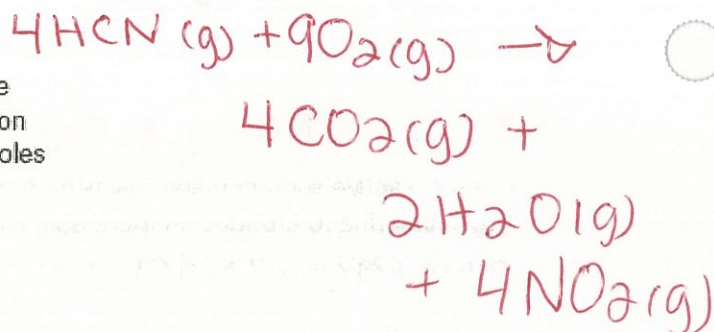 4HCN (g) + 9O2(g) →
e
on
oles
4CO2(g) +
2H2O(g)
+ 4NO2(g)